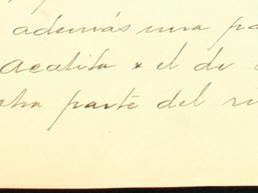 además una pa
Acatita & el de
otra parte del ri